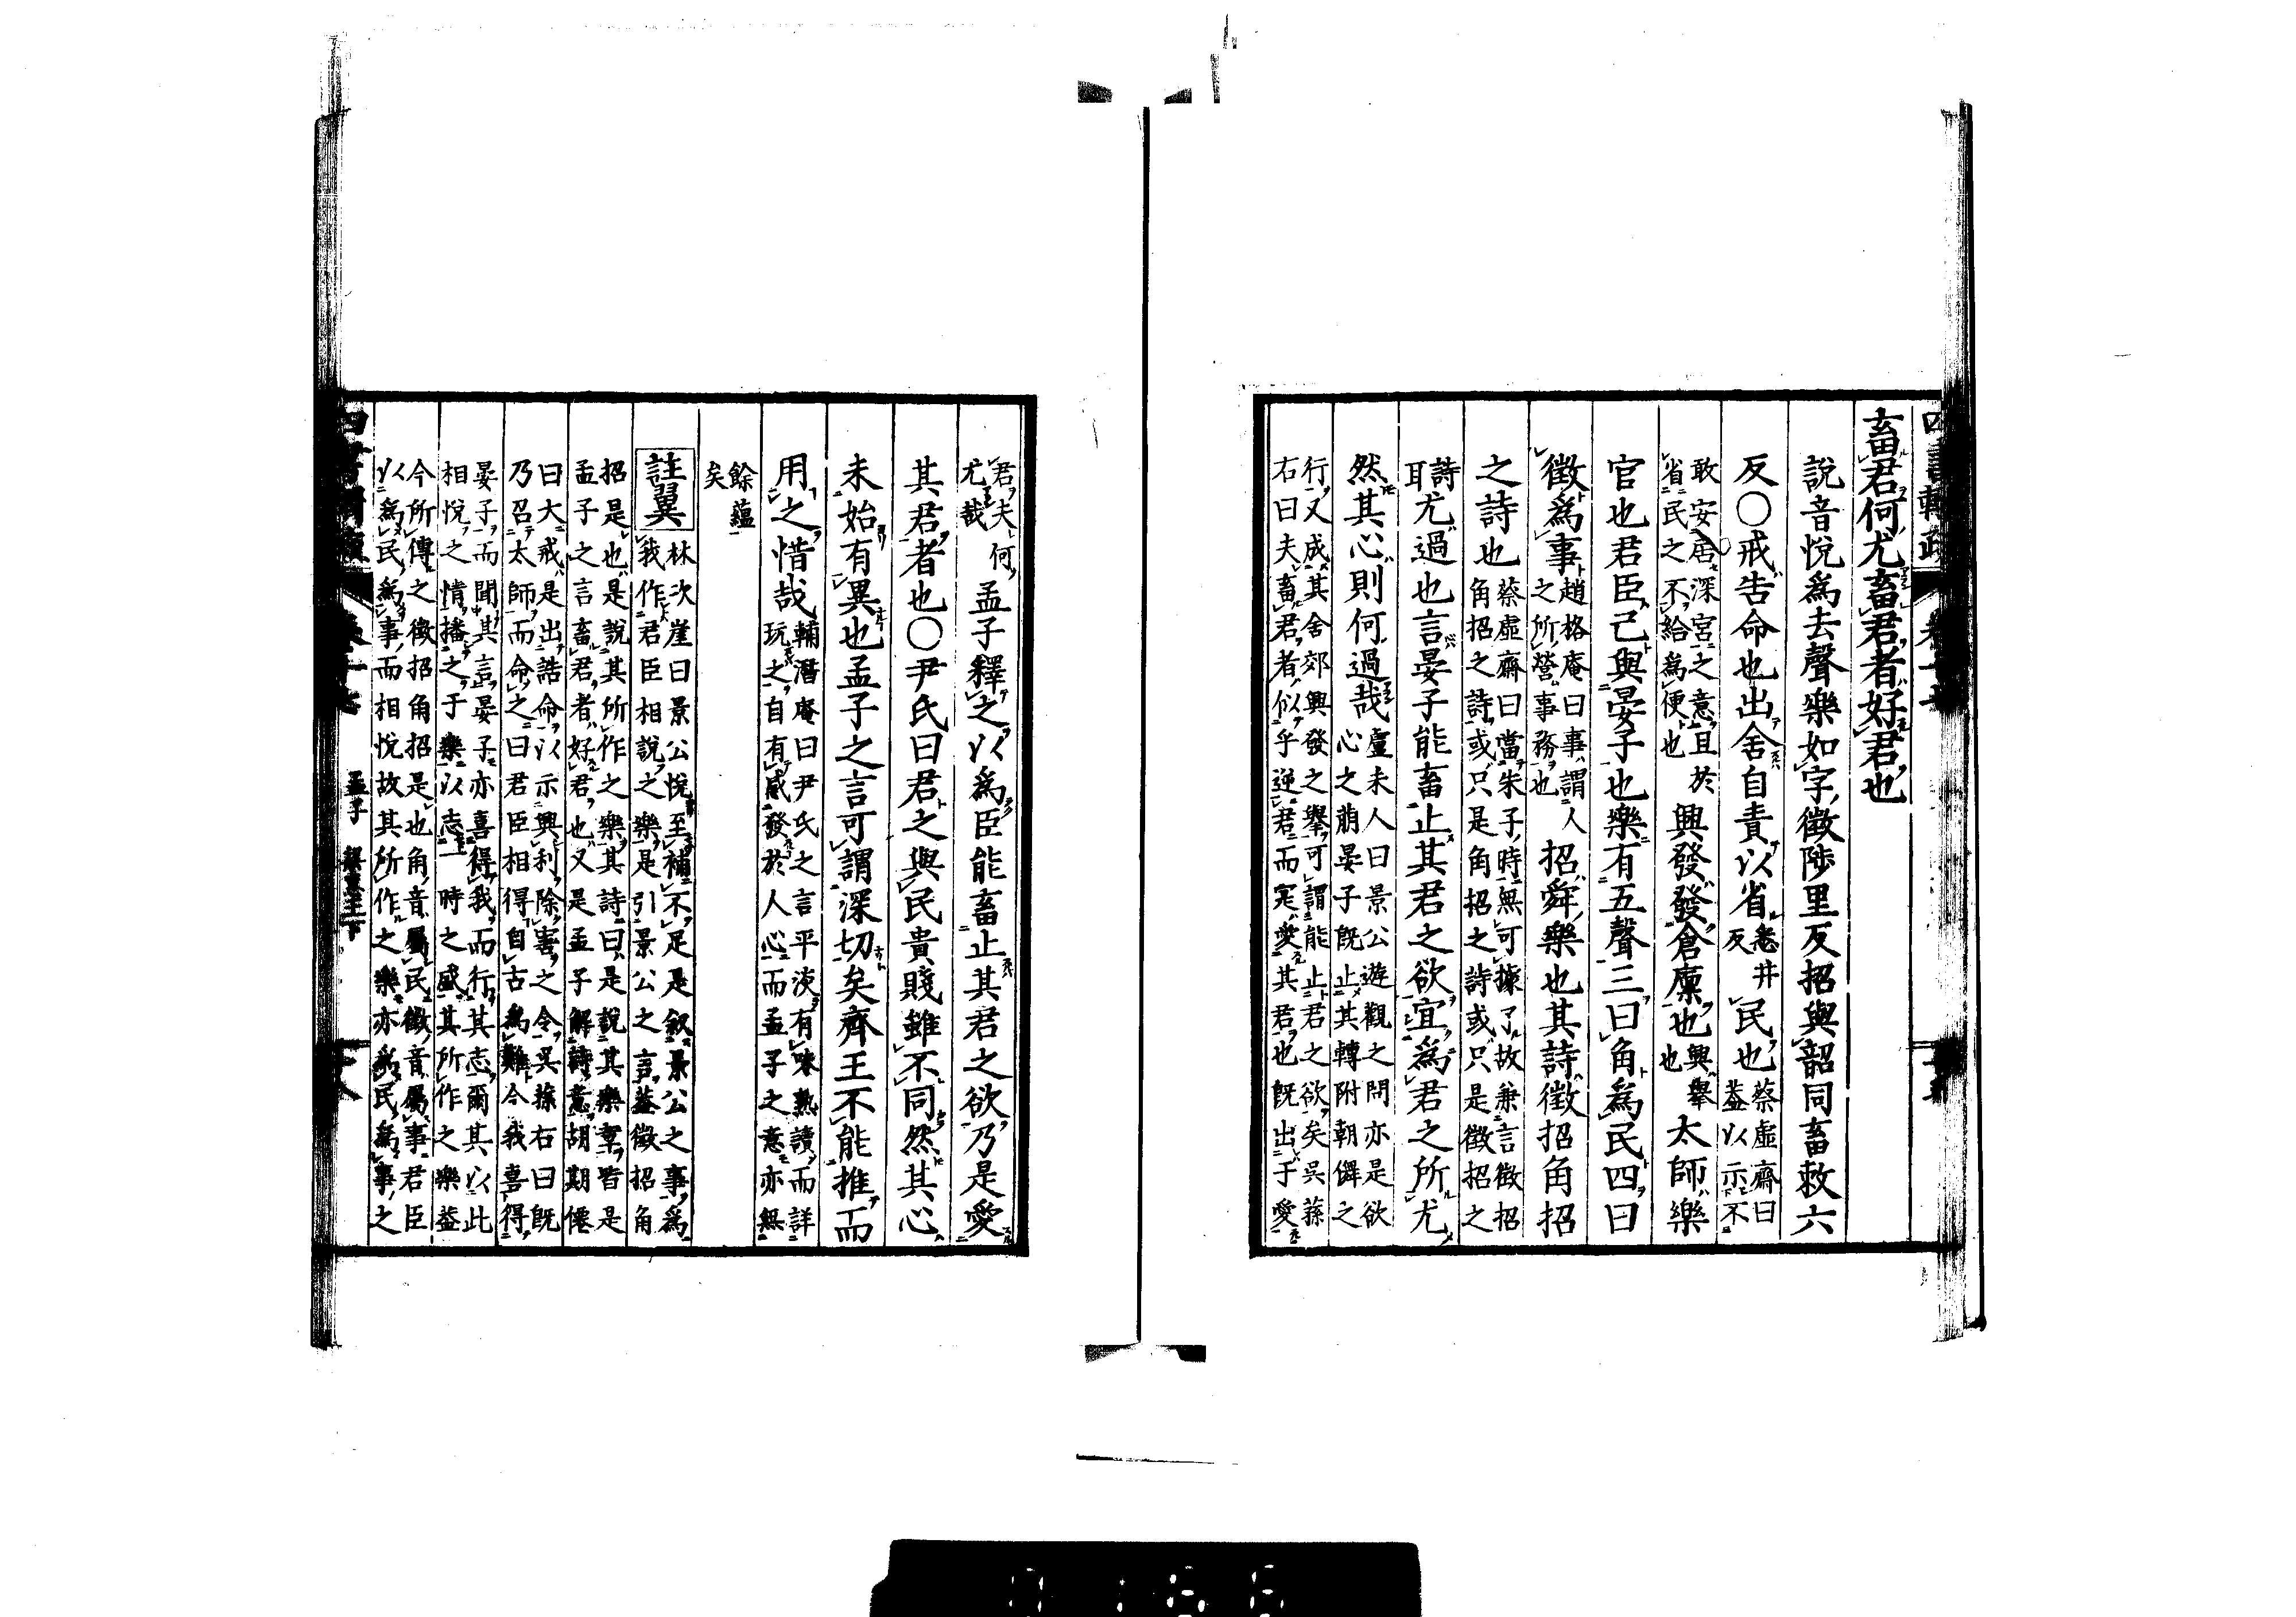 畜君何尤畜君者好君也
說音悅爲去聲樂如字徵陟里反招與韶同畜敕六
反〇戒告命也出舍自責以省悉井反民也蔡虛齋曰
蓋以示不
敢安居深宮之意且於
省民之不給爲便也
興發發倉廩也興舉也太師樂
官也君臣己與晏子也樂有五聲三曰角爲民四曰
徵爲事趙格庵曰事謂人
之所營事務也
招舜樂也其詩徵招角招
之詩也蔡虛齋曰當朱子時無可據了故兼言徵招
角招之詩或只是角招之詩或只是徵招之
詩
耳
尤過也言晏子能畜止其君之欲宜爲君之所尤
然其心則何過哉盧未人曰景公遊觀之問亦是欲
心之萠晏子旣止其轉附朝儛之
行又成其舍郊興發之舉可謂能止君之欲矣吳蓀
右曰夫畜君者似乎逆君而寔愛其君也旣出于愛
君夫何
尤哉
孟子釋之以爲臣能畜止其君之欲乃是愛
其君者也〇尹氏曰君之與民貴賤雖不同然其心
未始有異也孟子之言可謂深切矣齊王不能推而
用之惜哉輔潛庵曰尹氏之言平淡有味熟讀而詳
玩之自有感發於人心而孟子之意亦無
餘蘊
矣
註翼
林次崖曰景公悅至補不足是叙景公之事爲
我作君臣相說之樂是引景公之言蓋徵招角
招是也是說其所作之樂其詩曰是說其樂章皆是
孟子之言畜君者好君也又是孟子解詩意胡期僊
曰大戒是出誥命以示興利除害之令吳蓀右曰旣
乃召太師而命之曰君臣相得自古爲難今我喜得
晏子而聞其言晏子亦喜得我而行其志爾其以此
相悅之情播之于樂以志一時之感其所作之樂蓋
今所傳之徵招角招是也角音屬民徵音屬事君臣
以爲民爲事而相悅故其所作之樂亦爲民爲事之
孟子 梁惠王下